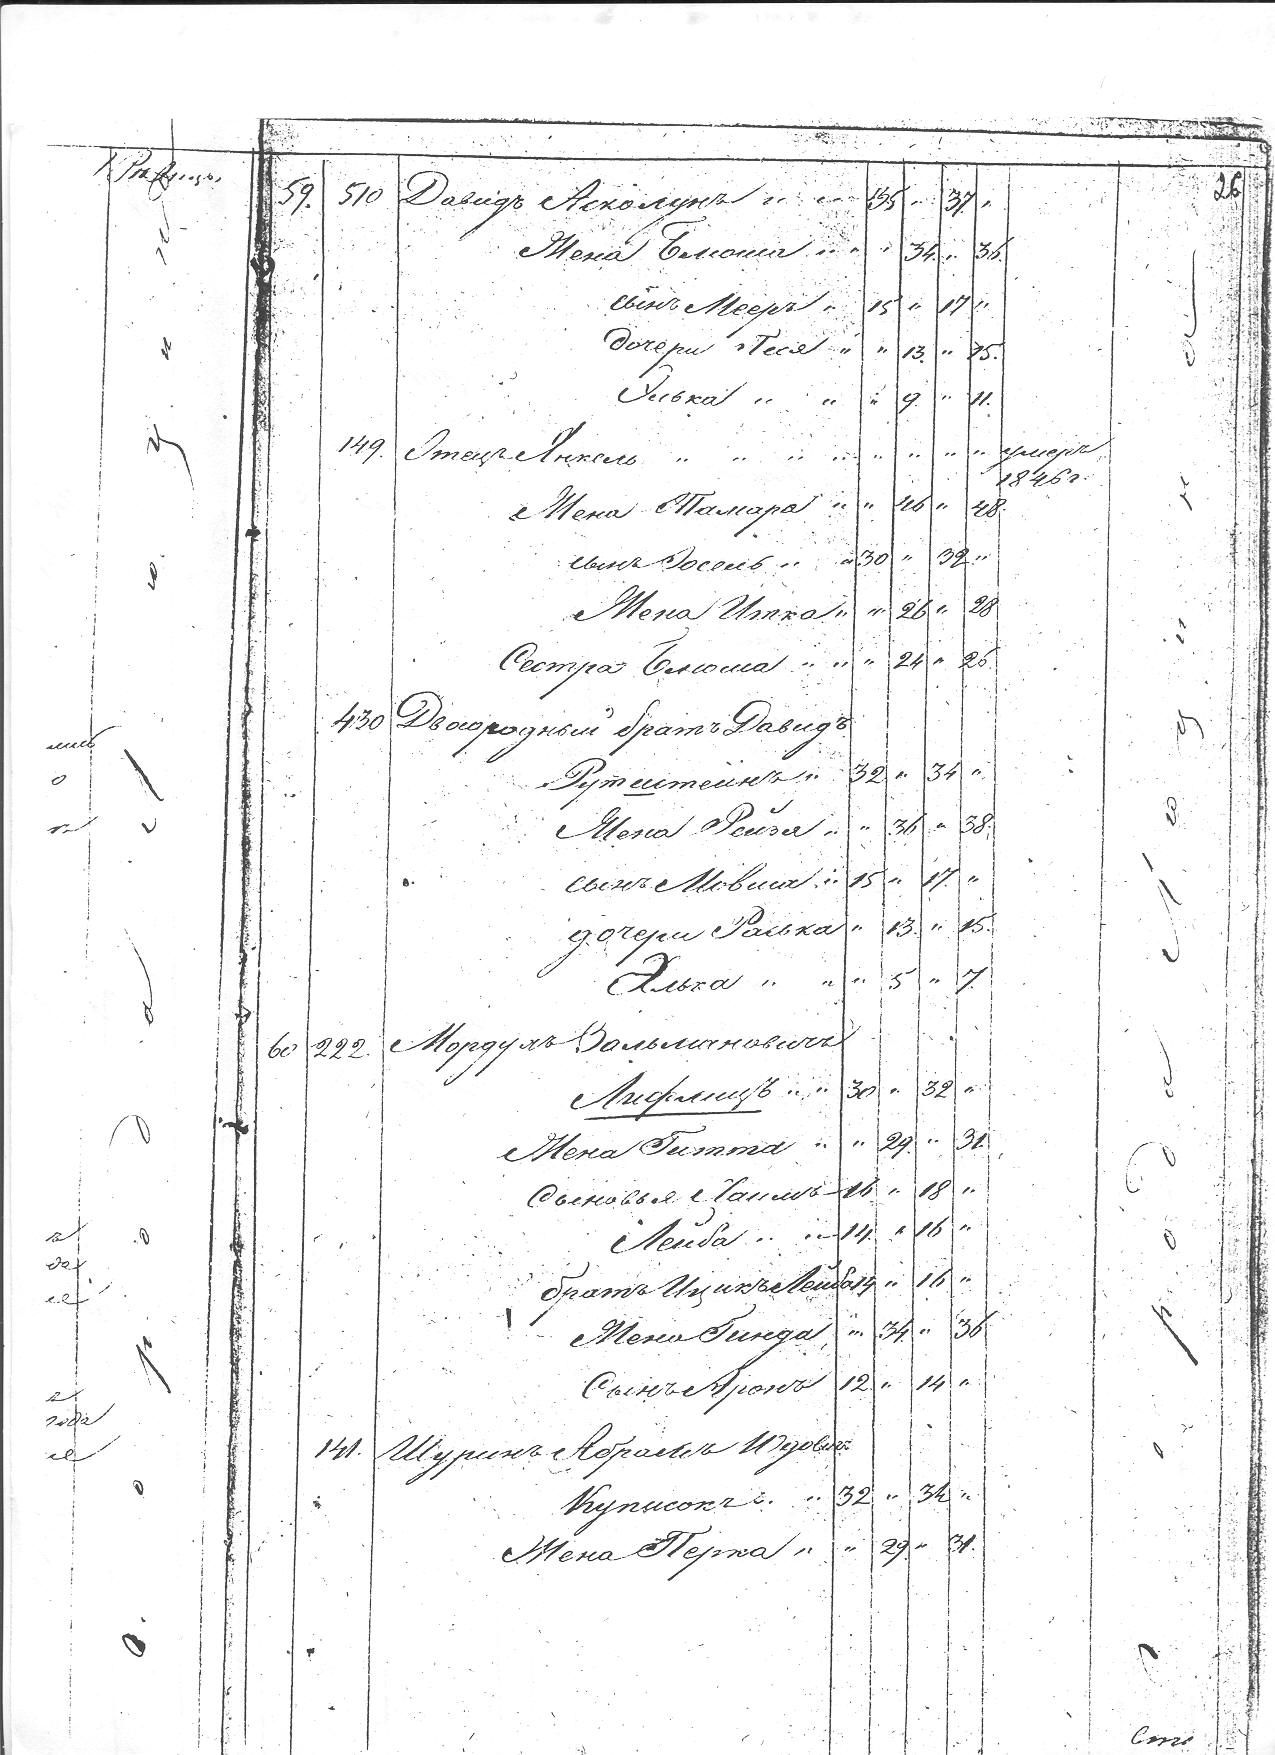 26
59. 510 Давидъ Асколунъ " " 35 " 37 "
Жена Блюма " " " 34. " 36.
сынъ Мееръ " 15 " 17 "
дочери Песя " " 13. " 15.
Элька " " " 9. " 11.
149. Отецъ Янкель " " " " " " " " умеръ
1846 г.
Жена Тамара " " 46 " 48.
сынъ Іосель " " 30 " 32 "
Жена Итка " " 26 " 28
Сестра Блюма " " " 24 " 26
430 Двоюродный братъ Давидъ
Рутштейнъ " 32 " 34 "
Жена Рейзя " " 36 " 38.
сынъ Мовша " 15 " 17. "
дочери Ралька " 13. " 15.
Элька " " " 5 " 7.
60 222. Мордухъ Зальмановичъ
Лифшицъ " " 30 " 32 "
Жена Гитта " " 29. " 31.
Сыновья Хаимъ 16. " 18 "
Лейба " " 14. " 16 "
братъ Ицикъ Лейба 14 " 16 "
Жена Гинда " 34. " 36
Сынъ Аронъ 12 " 14 "
141. Шуринъ Абрамъ Юдовичъ
Куписокъ " " 32 " 34 "
Жена Перка " " 29 " 31.